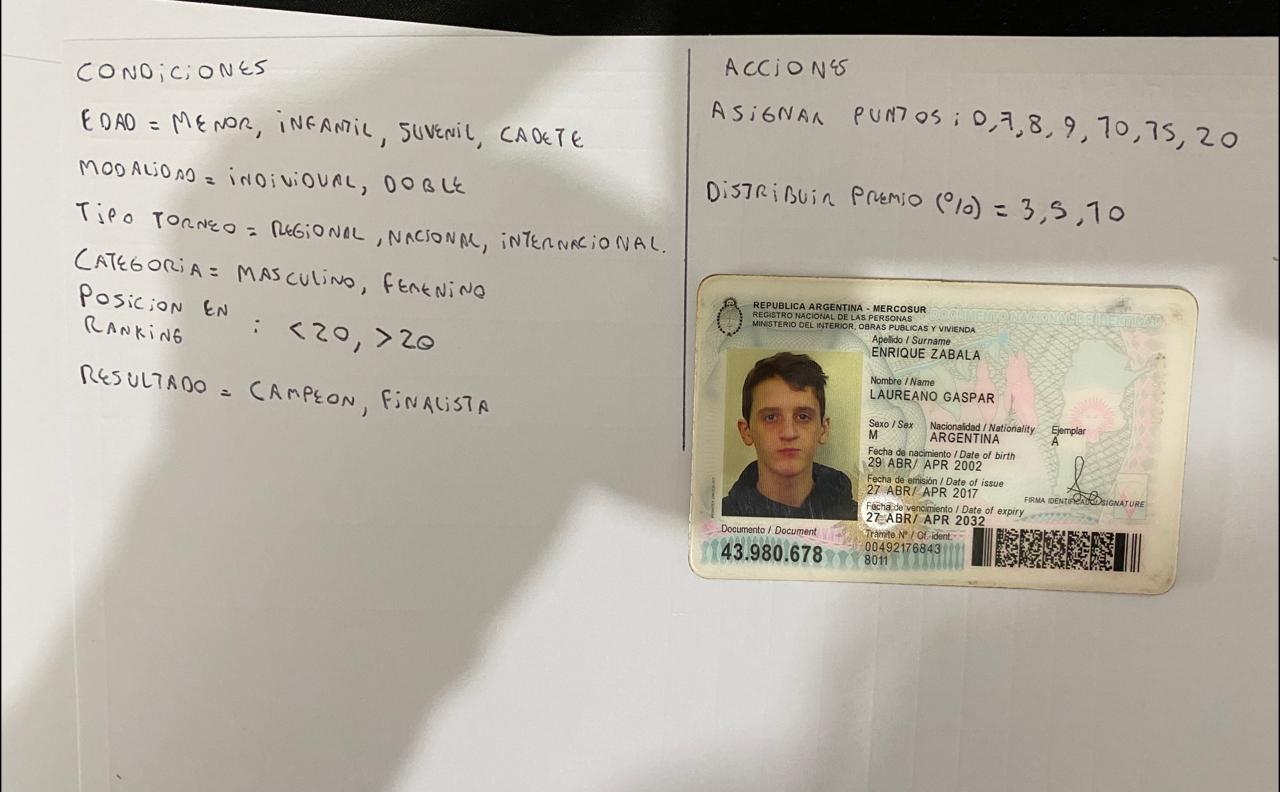 CONDICIONES
EDAD = MENOR, INFANTIL, JUVENIL, CADETE
MODALIDAD = INDIVIDUAL, DOBLE
TIPO TORNEO = REGIONAL, NACIONAL, INTERNACIONAL.
CATEGORIA = MASCULINO, FEMENINO
POSICION EN
RANKING : <20, >20
RESULTADO = CAMPEON, FINALISTA
ACCIONES
ASIGNAR PUNTOS : 0, 7, 8, 9, 10, 15, 20
DISTRIBUIR PREMIO (%) = 3, 5, 10
REPUBLICA ARGENTINA - MERCOSUR
REGISTRO NACIONAL DE LAS PERSONAS
MINISTERIO DEL INTERIOR, OBRAS PUBLICAS Y VIVIENDA
DOCUMENTO NACIONAL DE IDENTIDAD
Apellido / Surname
ENRIQUE ZABALA
Nombre / Name
LAUREANO GASPAR
Sexo / Sex Nacionalidad / Nationality Ejemplar
M ARGENTINA A
Fecha de nacimiento / Date of birth
29 ABR/ APR 2002
Fecha de emisión / Date of issue
27 ABR/ APR 2017
FIRMA IDENTIFICADO / SIGNATURE
Fecha de vencimiento / Date of expiry
27 ABR/ APR 2032
Documento / Document
43.980.678
Trámite N° / Of. ident.
00492176843
8011